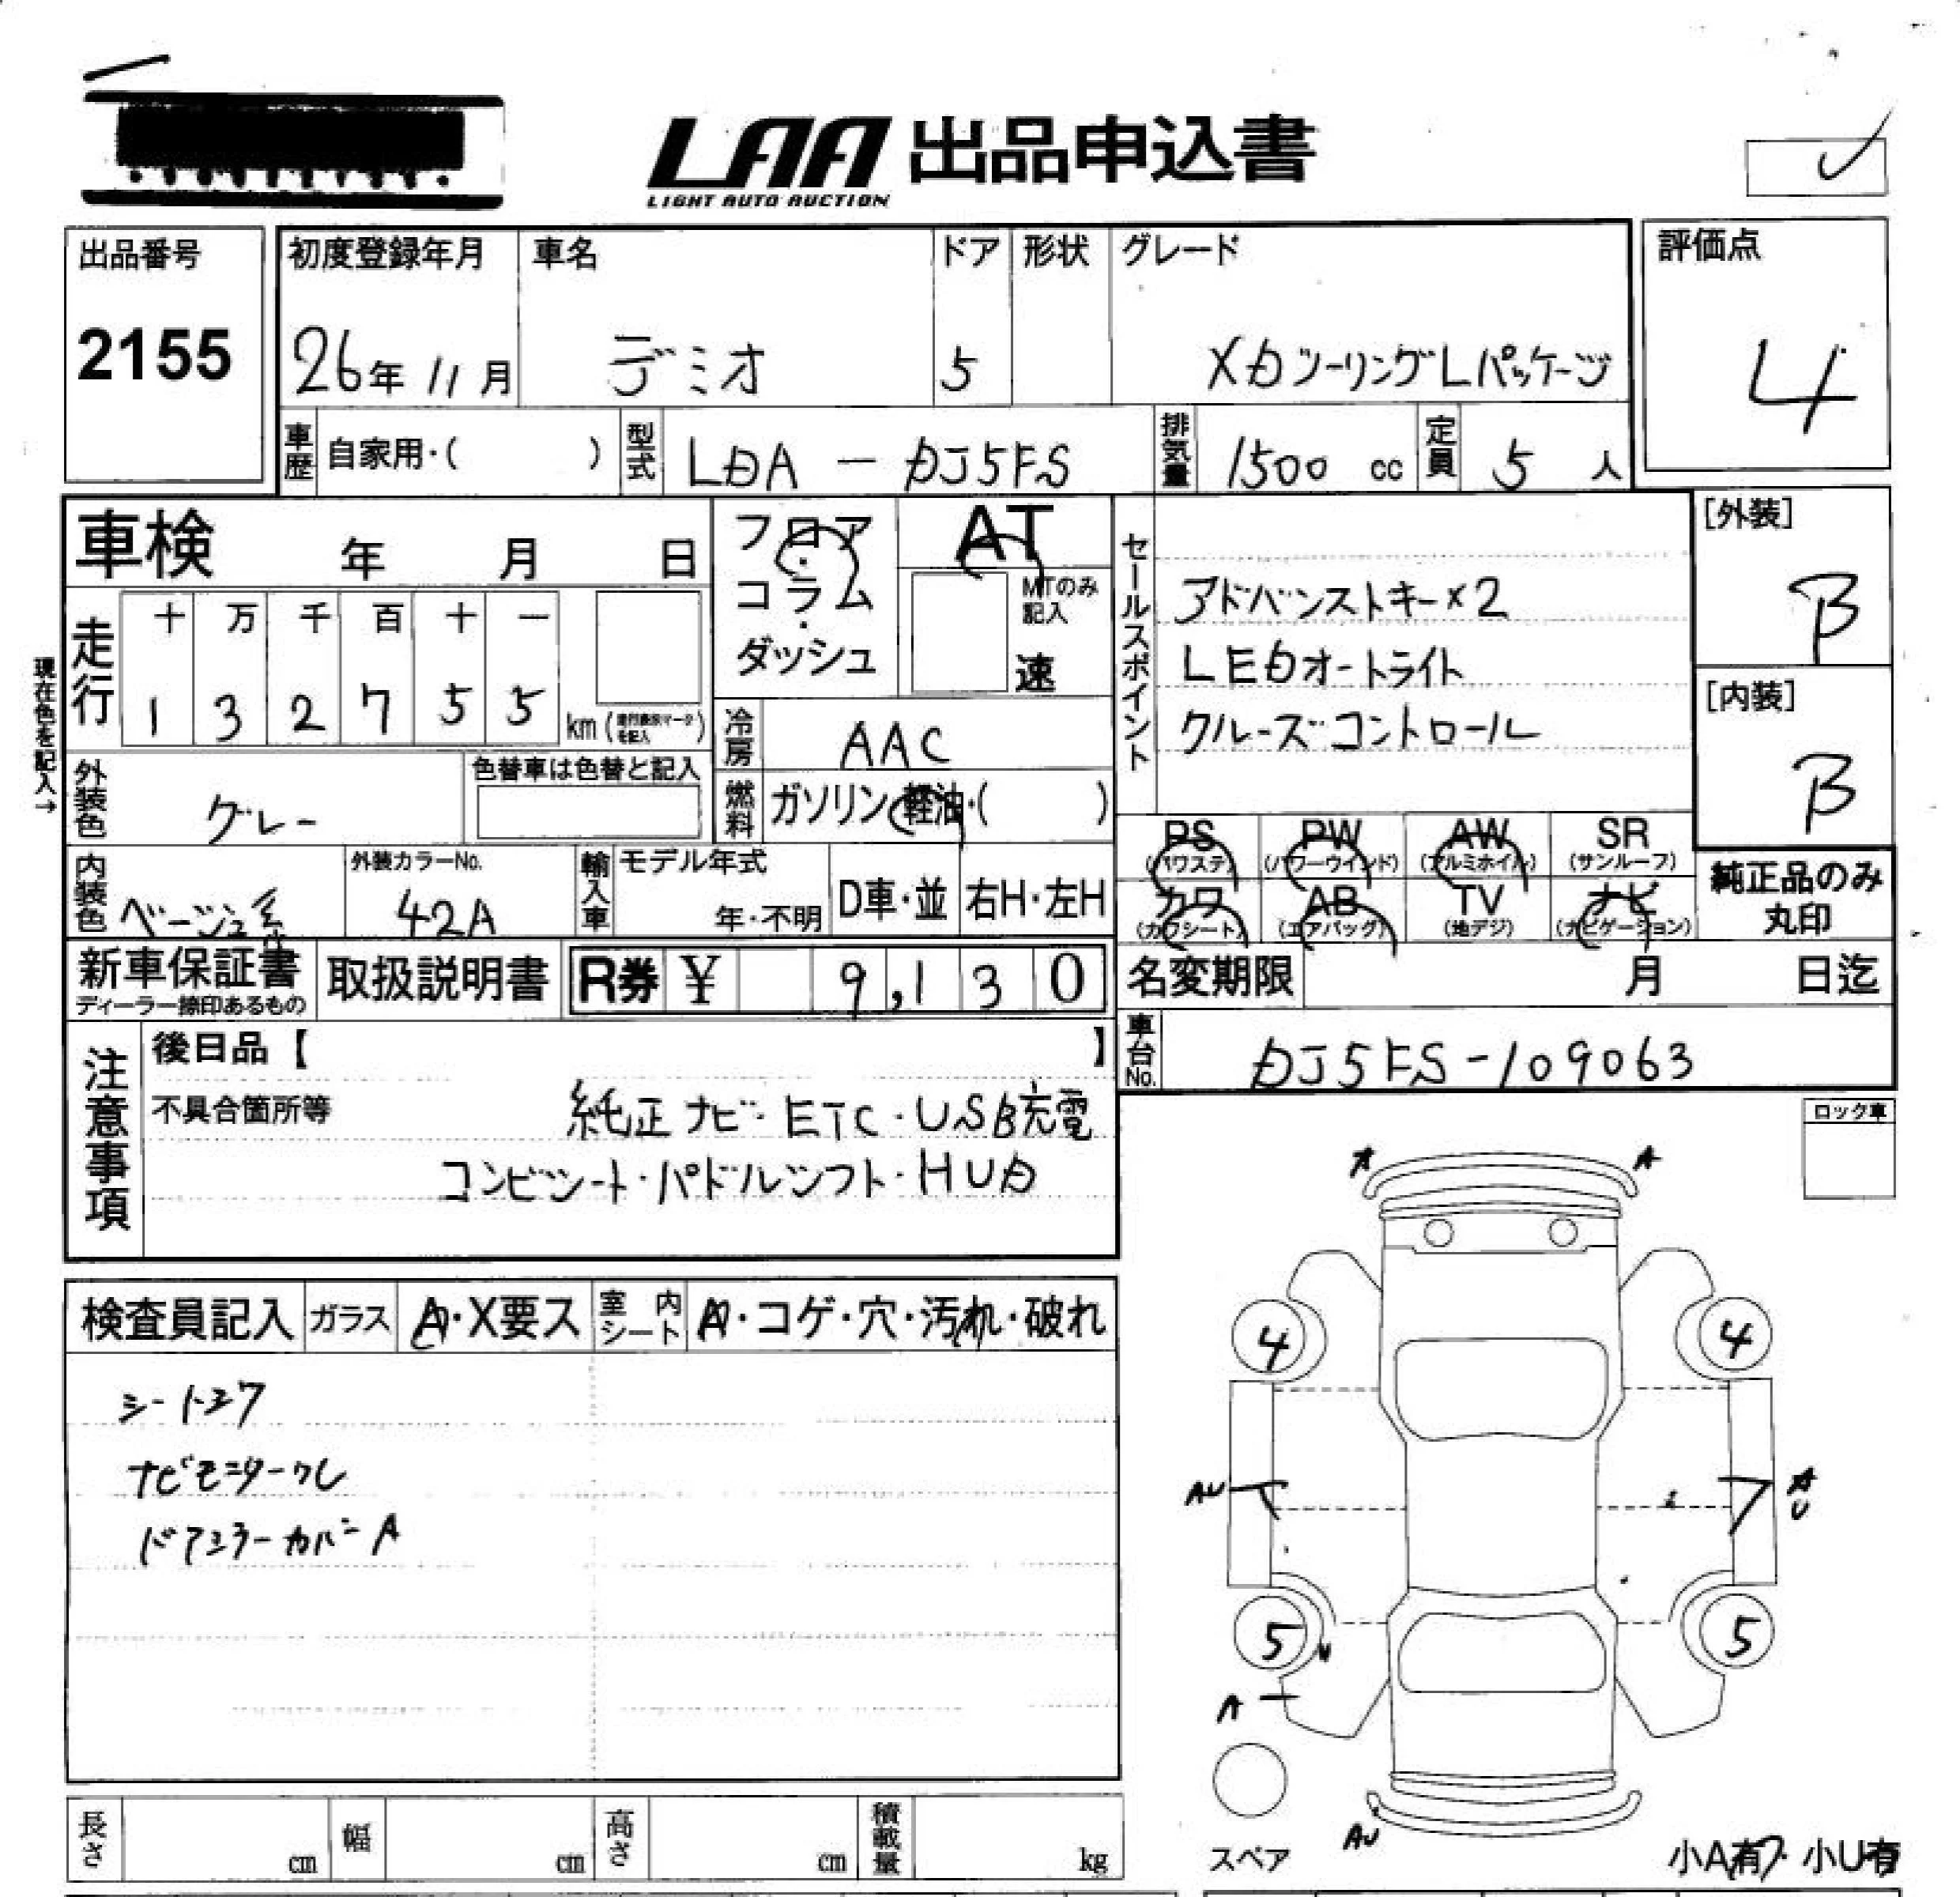 LAA 出品申込書
LIGHT AUTO AUCTION
出品番号
2155
初度登録年月
26年 11月
車名
デミオ
ドア
5
形状
グレード
XDツーリングLパッケージ
評価点
4
車歴 自家用・( )
型式 LDA - DJ5FS
排気量 1500 cc
定員 5 人
車検 年 月 日
フロア・コラム・ダッシュ
AT
MTのみ記入
速
セールスポイント
アドバンストキー×2
LEDオートライト
クルーズコントロール
[外装]
B
[内装]
B
現在色を記入→
走行
十 万 千 百 十 一
1 3 2 7 5 5
km (走行表示マークを記入)
冷房 AAC
燃料 ガソリン・軽油・( )
外装色 グレー
色替車は色替と記入
内装色 ベージュ系
外装カラーNo.
42A
輸入車 モデル年式
年・不明
D車・並
右H・左H
PS (パワステ)
PW (パワーウインド)
AW (アルミホイル)
SR (サンルーフ)
カワ (カワシート)
AB (エアバッグ)
TV (地デジ)
ナビ (ナビゲーション)
純正品のみ丸印
新車保証書
ディーラー捺印あるもの
取扱説明書
R券 ¥ 9,130
名変期限 月 日迄
車台No. DJ5FS-109063
注意事項
後日品【 】
不具合箇所等
純正ナビ・ETC・USB充電
コンビシート・パドルシフト・HUD
ロック車
検査員記入
ガラス A・X要ス
室内シート A・コゲ・穴・汚れ・破れ
シートコワ
ナビモニタークレ
ドアミラーカバーA
A A
4 4
AU A
U
5 U 5
A
AU
スペア
小A有 小U有
長さ cm
幅 cm
高さ cm
積載量 kg